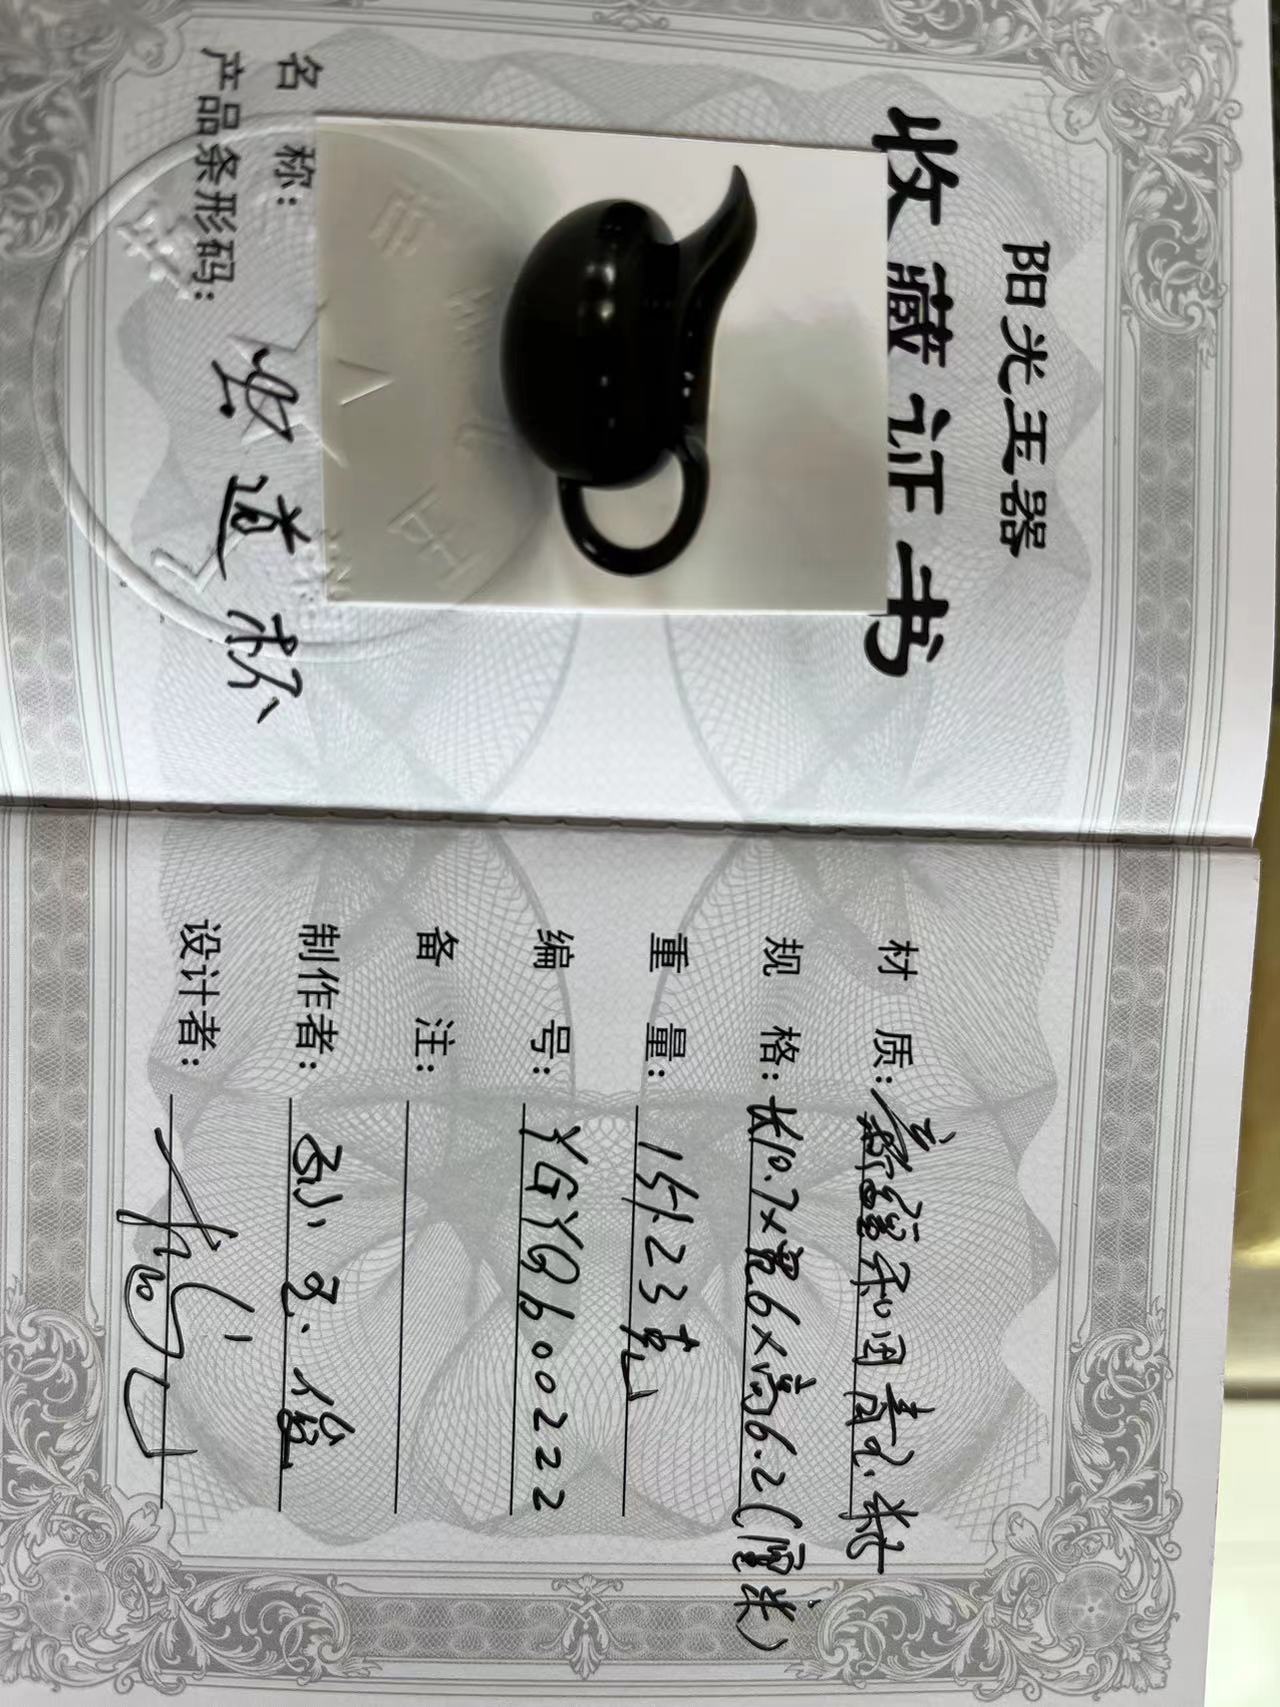 阳光玉器
收藏证书
名 称：
产品条形码：
公道杯
材 质：新疆和田青玉籽
规 格：长10.7×宽6×高6.2(厘米)
重 量：151.23克
编 号：YGYQ600222
备 注：
制作者：孙玉俊
设计者：